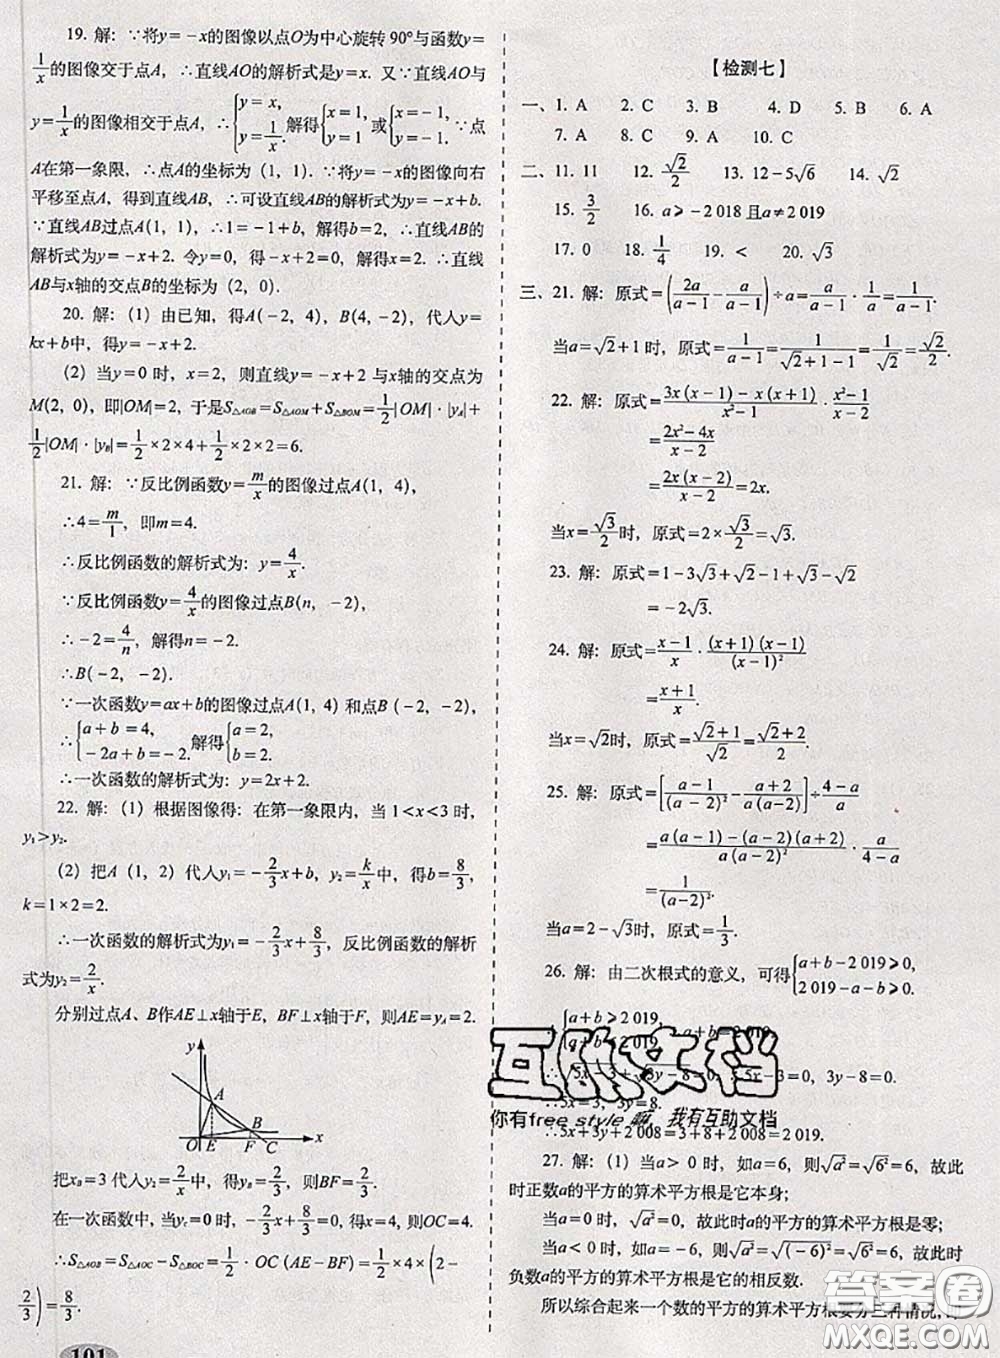 19. 解：∵将y=-x的图像以点O为中心旋转90°与函数y=
1/x的图像交于点A，∴直线AO的解析式是y=x. 又∵直线AO与
y=1/x的图像相交于点A，∴{y=x, y=1/x. 解得{x=1, y=1. 或{x=-1, y=-1. ∵点
A在第一象限，∴点A的坐标为（1，1）. ∵将y=-x的图像向右
平移至点A，得到直线AB，∴可设直线AB的解析式为y=-x+b.
∵直线AB过点A(1，1)，∴1=-1+b，解得b=2，∴直线AB的
解析式为y=-x+2. 令y=0，得-x+2=0，解得x=2. ∴直线
AB与x轴的交点B的坐标为（2，0）.
20. 解：(1) 由已知，得A(-2，4)，B(4，-2)，代人y=
kx+b中，得y=-x+2.
(2) 当y=0时，x=2，则直线y=-x+2与x轴的交点为
M(2，0)，即|OM|=2，于是S△AOB=S△AOM+S△BOM=1/2|OM|·|yA|+
1/2|OM|·|yB|=1/2×2×4+1/2×2×2=6.
21. 解：∵反比例函数y=m/x的图像过点A(1，4)，
∴4=m/1，即m=4.
∴反比例函数的解析式为：y=4/x.
∵反比例函数y=4/x的图像过点B(n，-2)，
∴-2=4/n，解得n=-2.
∴B(-2，-2).
∵一次函数y=ax+b的图像过点A(1，4)和点B(-2，-2)，
∴{a+b=4, -2a+b=-2. 解得{a=2, b=2.
∴一次函数的解析式为：y=2x+2.
22. 解：(1) 根据图像得：在第一象限内，当1<x<3时，
y₁>y₂.
(2) 把A（1，2）代人y₁=-2/3x+b，y₂=k/x中，得b=8/3，
k=1×2=2.
∴一次函数的解析式为y₁=-2/3x+8/3，反比例函数的解析
式为y₂=2/x.
分别过点A、B作AE⊥x轴于E，BF⊥x轴于F，则AE=yA=2.
y
A
B
O E F C x
把xB=3代人y₂=2/x中，得y=2/3，则BF=2/3.
在一次函数中，当yc=0时，-2/3x+8/3=0，得x=4，则OC=4.
∴S△AOB=S△AOC-S△BOC=1/2·OC(AE-BF)=1/2×4×(2-
2/3)=8/3.
101
【检测七】
一、1. A 2. C 3. B 4. D 5. B 6. A
7. A 8. C 9. A 10. C
二、11. 11 12. √2/2 13. 12-5√6 14. √2
15. 3/2 16. a≥-2 018且a≠2 019
17. 0 18. 1/4 19. < 20. √3
三、21. 解：原式=(2a/(a-1)-a/(a-1))÷a=a/(a-1)·1/a=1/(a-1).
当a=√2+1时，原式=1/(a-1)=1/(√2+1-1)=1/√2=√2/2.
22. 解：原式=(3x(x-1)-x(x+1))/(x²-1)·(x²-1)/(x-2)
=(2x²-4x)/(x-2)
=2x(x-2)/(x-2)=2x.
当x=√3/2时，原式=2×√3/2=√3.
23. 解：原式=1-3√3+√2+√3-√2
=-2√3.
24. 解：原式=(x-1)/x·(x+1)(x-1)/(x-1)²
=(x+1)/x.
当x=√2时，原式=(√2+1)/√2=(√2+2)/2.
25. 解：原式=[(a-1)/(a-2)²-(a+2)/a(a-2)]÷(4-a)/a
=(a(a-1)-(a-2)(a+2))/a(a-2)²·a/(4-a)
=1/(a-2)².
当a=2-√3时，原式=1/3.
26. 解：由二次根式的意义，可得{a+b-2 019≥0, 2 019-a-b≥0.
∴{a+b≥2 019, a+b=2 019.
3y-8=0. 5x-3=0，3y-8=0.
∴5x=3，3y=8.
∴5x+3y+2 008=3+8+2 008=2 019.
27. 解：(1) 当a>0时，如a=6，则√a²=√6²=6，故此
时正数a的平方的算术平方根是它本身；
当a=0时，√a²=0，故此时a的平方的算术平方根是零；
当a<0时，如a=-6，则√a²=√(-6)²=√6²=6，故此时
负数a的平方的算术平方根是它的相反数.
所以综合起来一个数的平方的算术平方根要分三种情况，即
互助文档
你有free style嘛，我有互助文档
答案圈
MXQE.COM